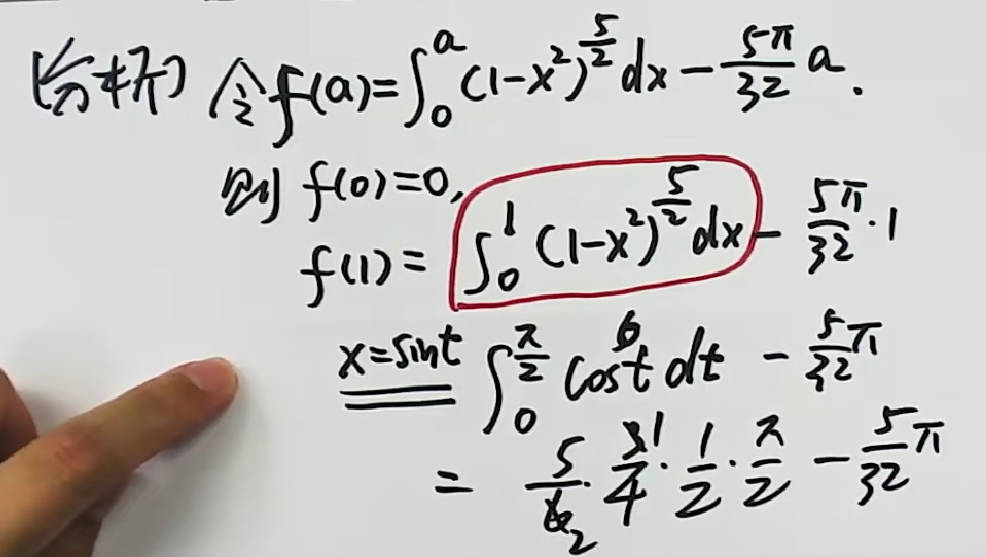 [分析] 令f(a)=∫₀ᵃ(1-x²)^(5/2)dx-5π/32 a.
则 f(0)=0,
f(1)=∫₀¹(1-x²)^(5/2)dx-5π/32·1
x=sint ∫₀^(π/2)cos⁶t dt-5/32π
=5/6₂·3¹/4·1/2·π/2-5/32π